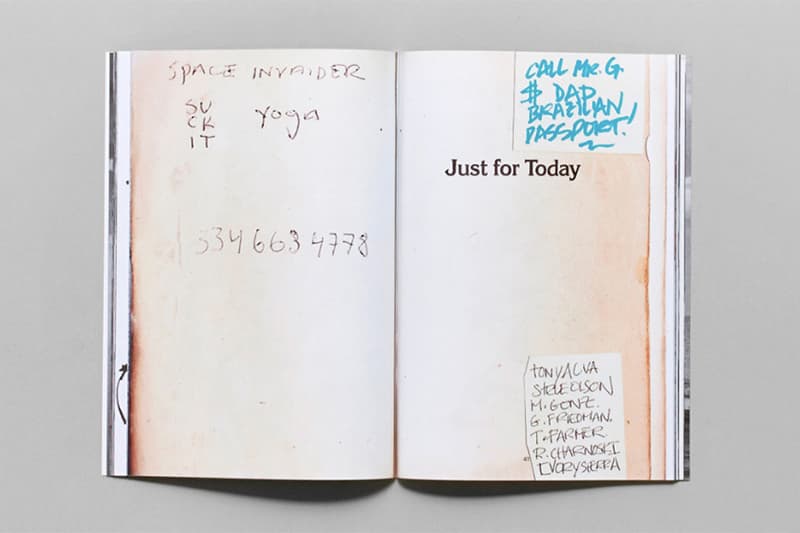 SPACE INVAIDER
SU
CK
IT
Yoga
534 663 4778
CALL MR. G.
$ DAD
BRAZILIAN/
PASSPORT!
Just for Today
TONYALVA
STEVE OLSON
M. GONZ.
G. FRIEDMAN.
T. FARMER.
R. CHARNOSKI
IVORY SERRA